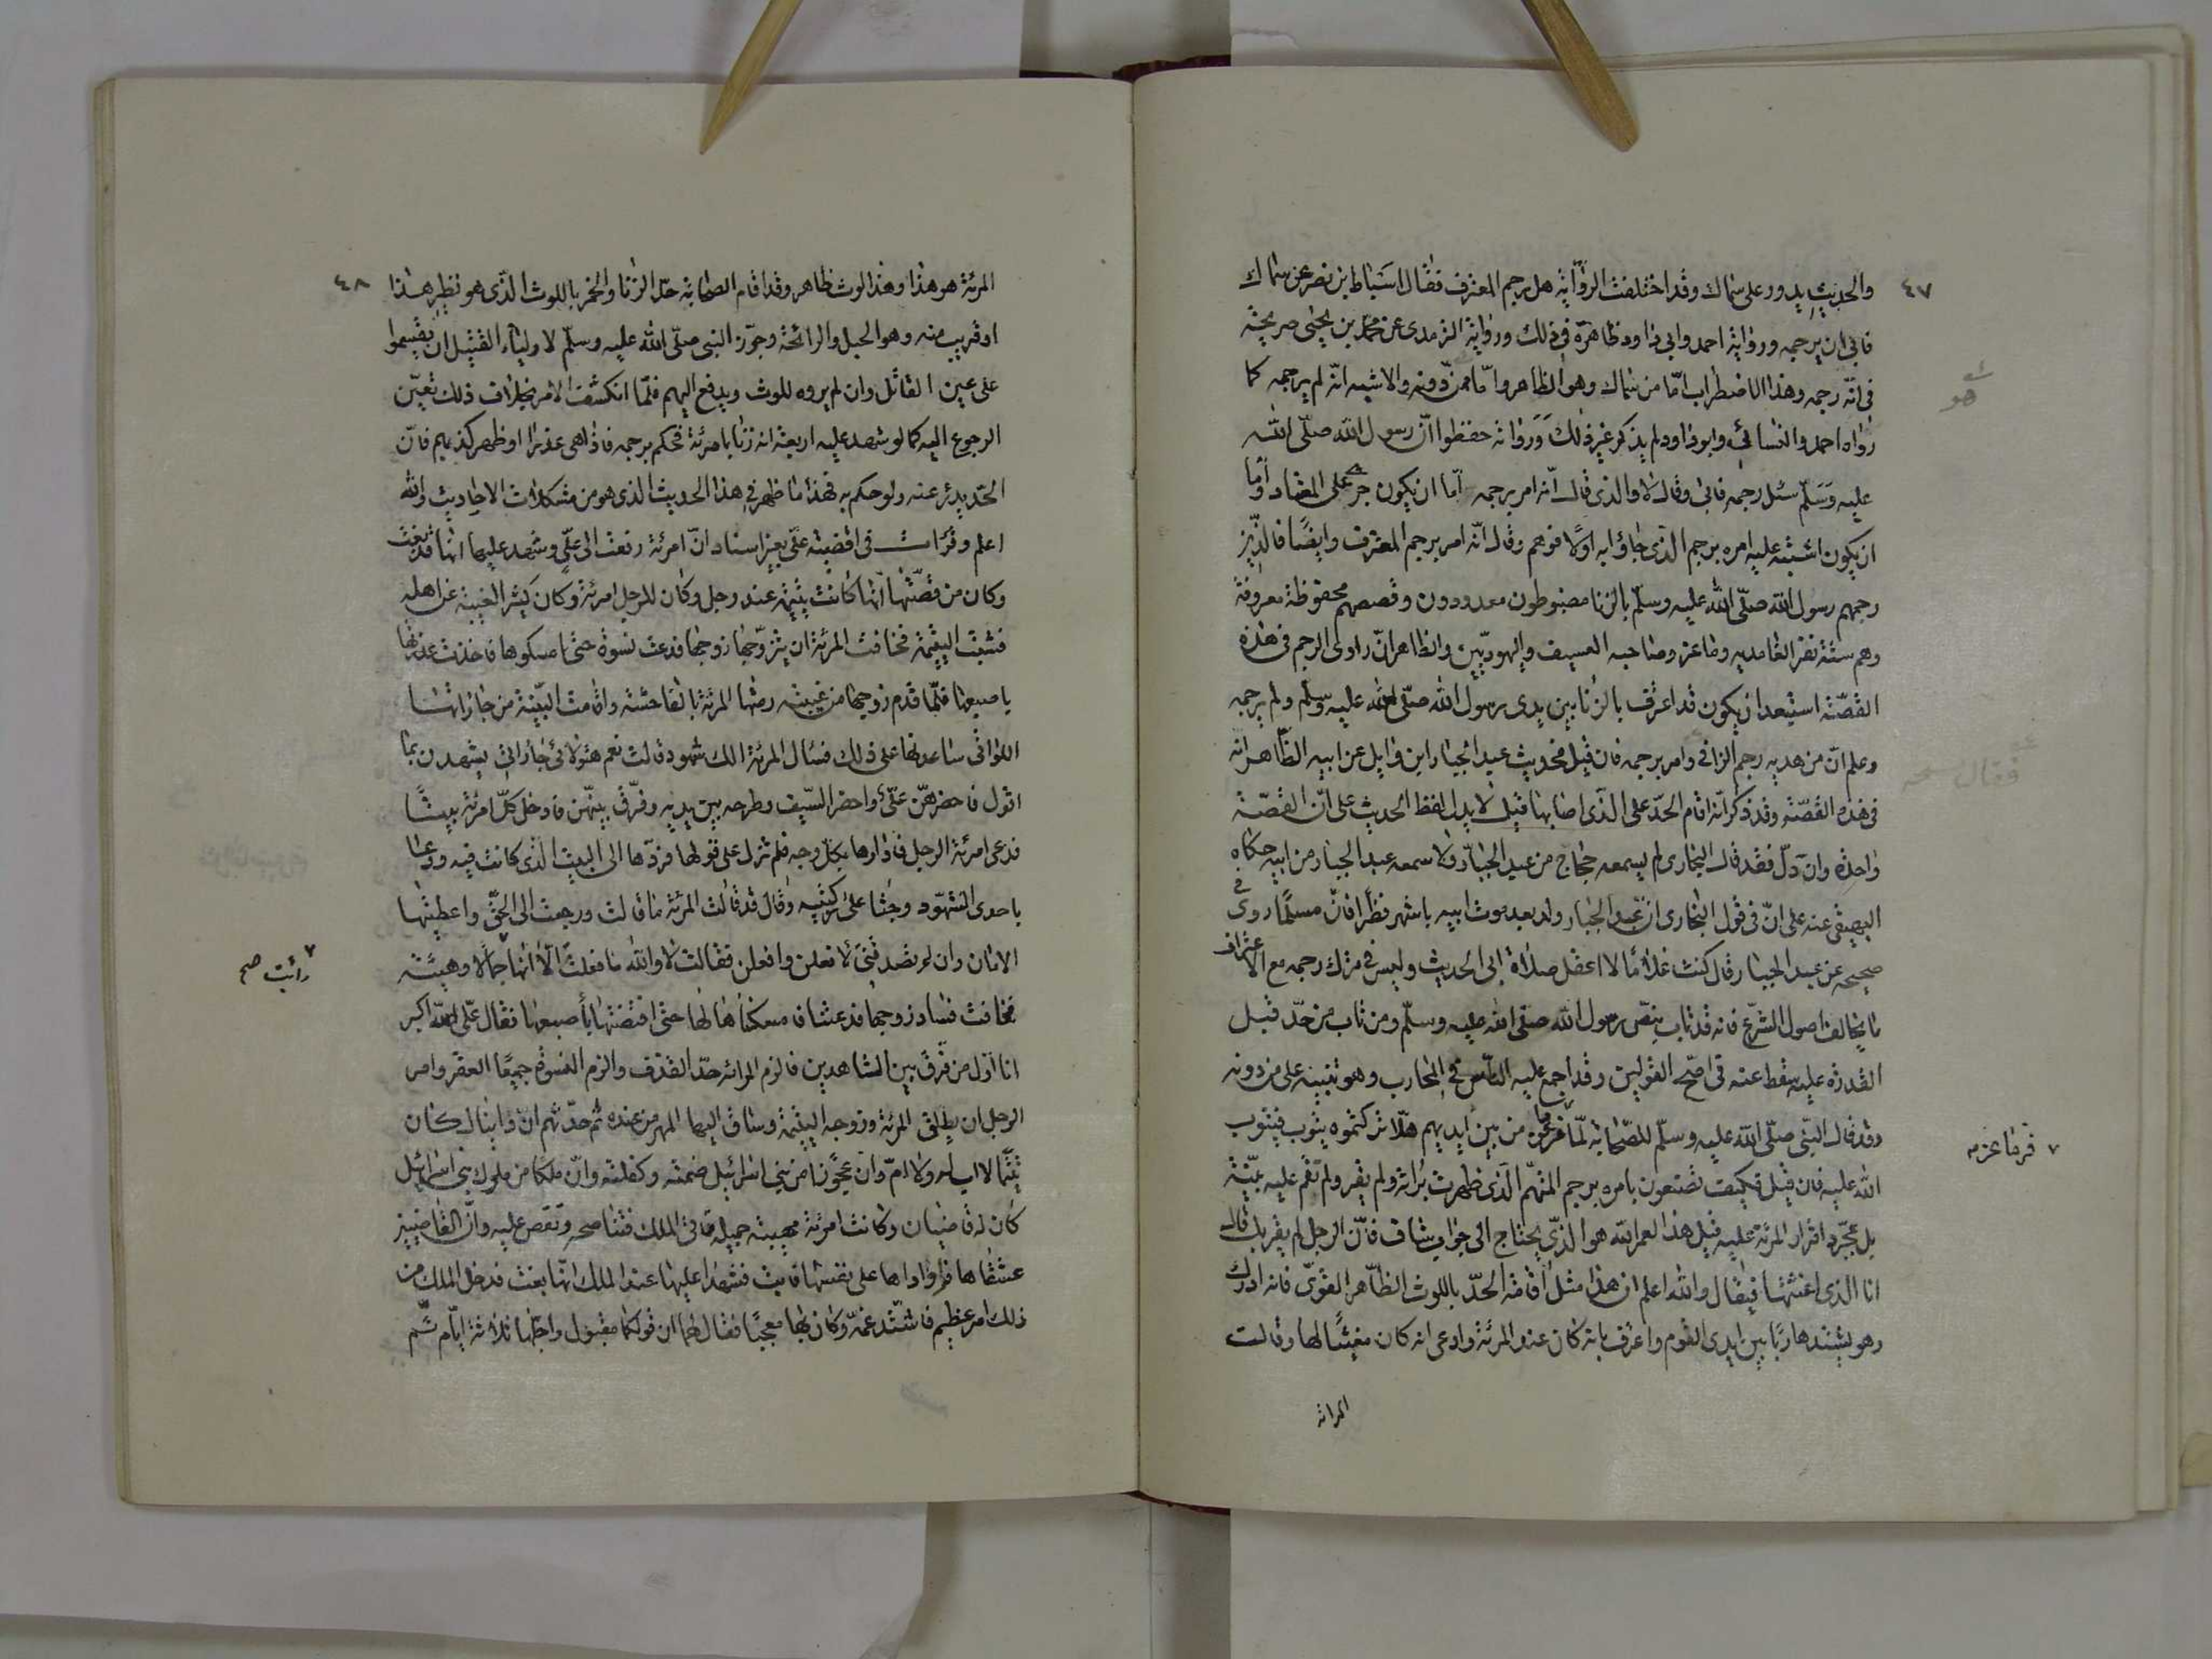 ٤٧
والحديث يدور على سماك وقد اختلفت الرواية هل رجم المعترف فقال اسباط بن نصر عن سماك
فابى ان يرجمه ورواية احمد وابى داود ظاهرة فى ذلك ورواية الترمذى عن محمد بن يحيى صريحة
فى انه رجمه وهذا الاضطراب امّا من سماك وهو الظاهر وامّا ممن دونه والاشبه انه لم يرجمه كما
رواه احمد والنسائى وابو داود لم يذكر غير ذلك ورواته حفظوا انّ رسول الله صلّى الله
عليه وسلّم سئل رجمه فابى وقال لا والذى قال انه امر برجمه امّا ان يكون جرى على المعتاد اومّا
ان يكون اشتبه عليه امره برجم الذى جاؤا به اولا فوهم وقال انه امر برجم المعترف وايضًا فالذين
رجمهم رسول الله صلّى الله عليه وسلّم بالزنا مضبوطون معدودون وقصصهم محفوظة معروفة
وهم ستة نفر الغامديه وماعز وصاحبه العسيف واليهوديّين والظاهر انّ راوى الرجم فى هذه
القصّة استبعد ان يكون قد اعترف بالزنا بين يدى رسول الله صلّى الله عليه وسلّم ولم يرجمه
وعلم انّ من هديه رجم الزانى وامر برجمه فان قيل فحديث عبد الجبار ابن وايل عن ابيه الظاهر انه
فى هذه القصّة وقد ذكر انه اقام الحدّ على الذى اصابها قيل لا يدل لفظ الحديث على انّ القصّة
واحدة وان دلّ فقد قال البخارى لم يسمعه حجاج من عبد الجبّار ولا سمعه عبد الجبار من ابيه حكاه
البيهقى عنه على انّ فى قول البخارى انّ عبد الجبار ولد بعد موت ابيه باشهر نظرًا فانّ مسلمًا روى فى
صحيحه عن عبد الجبار قال كنت غلامًا لا اعقل صلاة ابى الحديث وليس فى ترك رجمه مع الاعتراف
ما يخالف اصول الشرع فانه قد تاب بنصّ رسول الله صلّى الله عليه وسلّم ومن تاب من حدّ قبل
القدرة عليه سقط عنه فى اصحّ القولين وقد اجمع عليه الناس فى المحارب وهو تنبيه على من دونه
وقد قال النبى صلّى الله عليه وسلّم للصّحابة لمّا فرماعز من بين ايديهم هلّا تركتموه يتوب فيتوب
الله عليه فان قيل فكيف تصنعون بامره برجم المتهم الذى ظهرت برائته ولم يقر ولم تقم عليه بيّنة
بل بمجرّد اقرار المرئة عليه قيل هذا لعمر الله هو الذى يحتاج الى جواب شاف فانّ الرجل لم يقر بل قال
انا الذى اغثتها فيقال والله اعلم ان هذا مثل اقامة الحدّ باللوث الظاهر القوىّ فانه ادرك
وهو يشتد هاربًا بين ايدى القوم واعترف بانه كان عند المرئة وادعى انه كان مغيثًا لها وقالت
المرائة
هو
فقال صحـ
٧ فرماعز مـ
٤٨
المرئة هو هذا وهذا لوث ظاهر وقد اقام الصحابة حدّ الزنا والخمر باللوث الذى هو نظير هذا
او قريب منه وهو الحبل والرائحة وجوّز النبى صلّى الله عليه وسلّم لاولياء القتيل ان يقسموا
على عين القاتل وان لم يروه للوث ويدفع اليهم فلمّا انكشف الامر بخلاف ذلك تعيّن
الرجوع اليه كما لو شهد عليه اربعة انه زنا بامرئة فحكم برجمه فاذا هى عذرا او ظهر كذبهم فانّ
الحدّ يدرء عنه ولو حكم به فهذا ما ظهر فى هذا الحديث الذى هو من مشكلات الاحاديث والله
اعلم وقرات فى اقضية علّى بغير اسناد انّ امرئة رفعت الى علّى وشهد عليها انها قد بغت
وكان من قصّتها انها كانت يتيمة عند رجل وكان للرجل امرئة وكان كثير الغيبة عن اهله
فشبّت اليتيمة فخافت المرئة ان يتزوّجها زوجها فدعت نسوة حتى امسكوها فاخذت عذرتها
باصبعها فلمّا قدم زوجها من غيبته رمتها المرئة بالفاحشة واقامت البيّنة من جاراتها
اللواتى ساعدنها على ذلك فسال المرئة الك شهود قالت نعم هؤلائى جاراتى يشهدن بما
اقول فاحضرهنّ علّى واحضر السيف وطرحه بين يديه وفرّق بينهنّ فادخل كلّ امرئة بيتًا
فدعى امرئة الرجل فادارها بكلّ وجه فلم تزل على قولها فردّها الى البيت الذى كانت فيه ودعا
باحدى الشهود وجثا على ركبتيه وقال قد قالت المرئة ما قالت ورجعت الى الحقّ واعطيتها
الامان وان لم تصدقينى لافعلن وافعلن فقالت لا والله ما فعلت الّا انها جمالا وهيئة
فخافت فساد زوجها فدعتنا فامسكناها لها حتى افتضتها باصبعها فقال علّى الله اكبر
انا اوّل من فرّق بين الشاهدين فالزم المرائة حدّ القذف والزم النسوة جميعًا العقر وامر
الرجل ان يطلق المرئة وزوجه اليتيمة وساق اليها المهر من عنده ثم حدّثهم ان دانيال كان
يتيمًا لا اب له ولا امّ وان عجوزًا من بنى اسرائيل ضمته وكفلته وانّ ملكا من ملوك بنى اسرائيل
كان له قاضيان وكانت امرئة مهيبة جميلة تاتى الملك فتناصحه وتقص عليه وانّ القاضيين
عشقاها فراوداها على نفسها فابت فشهدا عليها عند الملك انها بغت فدخل الملك من
ذلك امر عظيم فاشتد غمّه وكان بها معجبًا فقال لهما ان قولكما مقبول واجلها ثلاثة ايّام ثمّ
٧ رائيت صح